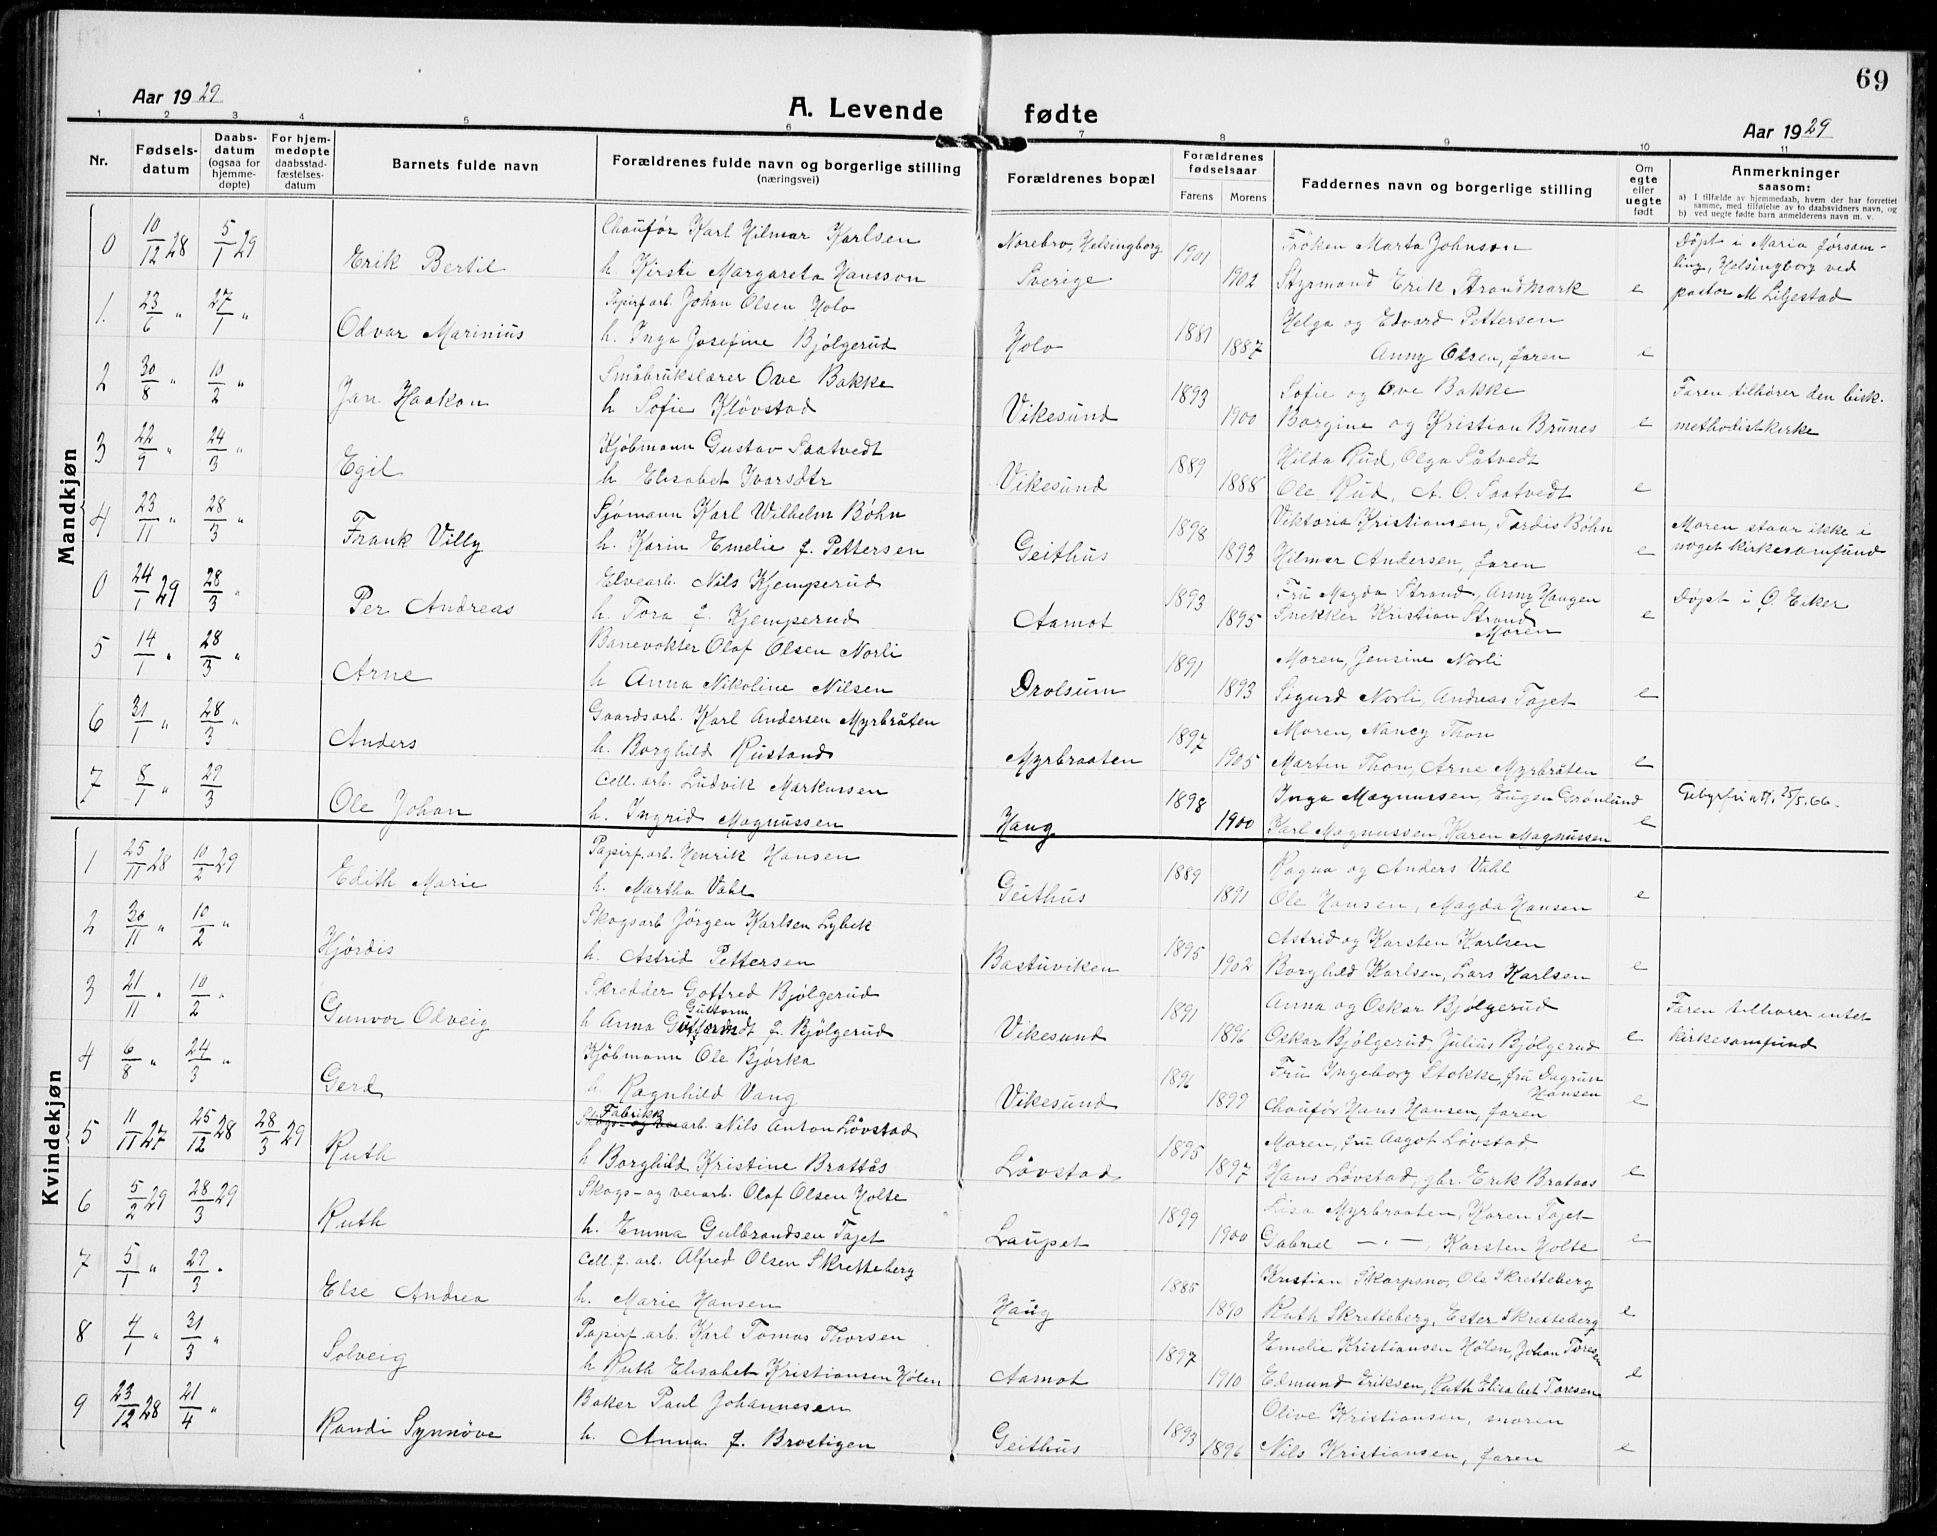 69
Aar 1929
A. Levende fødte
Aar 1929
1 2 3 4 5 6 7 8 9 10 11
Nr. Fødselsdatum Daabsdatum (ogsaa for hjemmedøpte) For hjemmedøpte daabsstadfæstelsesdatum Barnets fulde navn Forældrenes fulde navn og borgerlige stilling (næringsvei) Forældrenes bopæl Forældrenes fødselsaar Farens Morens Faddernes navn og borgerlige stilling Om egte eller uegte født Anmerkninger saasom:
a) I tilfælde av hjemmedaab, hvem der har forrettet samme, med tilføielse av to daabsvidners navn, og
b) ved uegte fødte barn anmelderens navn m. v.
Mandkjøn
0 10/12 28 5/1 29 Erik Bertil Chaufør Karl Hilmar Karlsen Norebro, Helsingborg 1901 Frøken Marta Johnson Døpt i Maria førsam-
h. Kirsti Margareta Hansson Sverige 1902 Styrmand Erik Strandmark e ling, Helsingborg ved
pastor M Liljestad
1. 23/6 " 27/1 " Odvar Marinius Papirf. arb. Johan Olsen Holo 1881 Helga og Edvard Pettersen
h. Inga Josefine Bjølgerud Holo 1887 Anny Olsen, faren e
2 30/8 " 10/2 " Jan Haakon Småbrukslærer Ove Bakke 1893 Sofie og Ove Bakke Faren tilhører den bisk.
h Sofie Kløvstad Vikesund 1900 Borgine og Kristian Brunes e methodistkirke
3 22/9 " 24/3 " Egil Kjøbmann Gustav Saatvedt 1889 Hilda Rud, Olga Såtvedt
h Elisabet Ivarsdtr Vikesund 1888 Ole Rud, A. O. Saatvedt e
4 23/11 " 28/3 " Frank Villy Sjømann Karl Wilhelm Bøhn 1898 Viktoria Kristiansen, Tordis Bøhn Moren staar ikke i
h. Karin Emelie f. Pettersen Geithus 1893 Hilmar Andersen, faren e noget kirkesamfund
0 24/1 29 28/3 " Per Andreas Elvearb. Nils Kjemperud 1893 Fru Magda Strand, Anny Haugen Døpt i Ø. Eiker
h. Tora f. Kjemperud Aamot 1895 Snekker Kristian Strand e
Moren
5 14/1 " 28/3 " Arne Banevokter Olaf Olsen Norli 1891 Moren, Jensine Norli
h Anna Nikoline Nilsen Drolsum 1893 Sigurd Norli, Andreas Tajet e
6 31/1 " 28/3 " Anders Gaardsarb. Karl Andersen Myrbråten 1897 Moren, Nancy Thon
h. Borghild Rustand Myrbraaten 1905 Martin Thon, Arne Myrbråten e
7 8/1 " 29/3 Ole Johan Cell. arb. Ludvik Markussen 1898 Inga Magnussen, Eugen Grønlund Gebyrfri att. 25/5.66.
h. Ingrid Magnussen Haug 1900 Karl Magnussen, Karen Magnussen e
Kvindekjøn
1 25/11 28 10/2 29 Edith Marie Papirf. arb. Henrik Hansen 1889 Ragna og Anders Vahl
h. Martha Vahl Geithus 1891 Ole Hansen, Magda Hansen e
2 30/11 " 10/2 " Hjørdis Skogsarb Jørgen Karlsen Lybek 1895 Astrid og Karsten Karlsen
h. Astrid Pettersen Bastuviken 1902 Borghild Karlsen, Lars Karlsen e
3 21/11 " 10/2 " Gunvor Odveig Skredder Gotfred Bjølgerud 1891 Anna og Oskar Bjølgerud Faren tilhører intet
Guttorm
h Anna f. Bjølgerud Vikesund 1896 Oskar Bjølgerud, Julius Bjølgerud e kirkesamfund
4 6/8 " 24/3 " Gerd Kjøbmann Ole Bjørka 1896 Fru Ingeborg Stokke, fru Dagrun
Hansen
h Ragnhild Vang Vikesund 1899 Chaufør Hans Hansen, faren e
Fabrikk
5 11/11 27 25/12 28 28/3 29 Ruth Skogs- og veiarb. Nils Anton Løvstad 1895 Moren, fru Aagot Løvstad
h Borghild Kristine Brattås Løvstad 1897 Hans Løvstad, gbr. Erik Brataas e
6 5/2 29 28/3 29 Ruth Skogs- og veiarb. Olaf Olsen Holte 1899 Lisa Myrbraaten, Karen Tajet
h. Emma Gulbrandsen Tajet Laupet 1900 Gabriel — " —, Karsten Holte e
7 5/1 " 29/3 " Else Andrea Cell. f. arb. Alfred Olsen Skretteberg 1885 Kristian Skarpsno, Ole Skretteberg
h. Marie Hansen Haug 1890 Ruth Skretteberg, Ester Skretteberg e
8 4/1 " 31/3 " Solveig Papirf. arb. Karl Tomas Thorsen 1897 Emelie Kristiansen Hølen, Johan Toresen
h Ruth Elisabet Kristiansen Hølen Aamot 1910 Edmund Eriksen, Ruth Elisabet Toresen e
9 23/12 28 21/4 " Randi Synnøve Baker Paul Johannesen 1893 Olive Kristiansen, moren
h. Anna f. Brostigen Geithus 1896 Nils Kristiansen, faren e